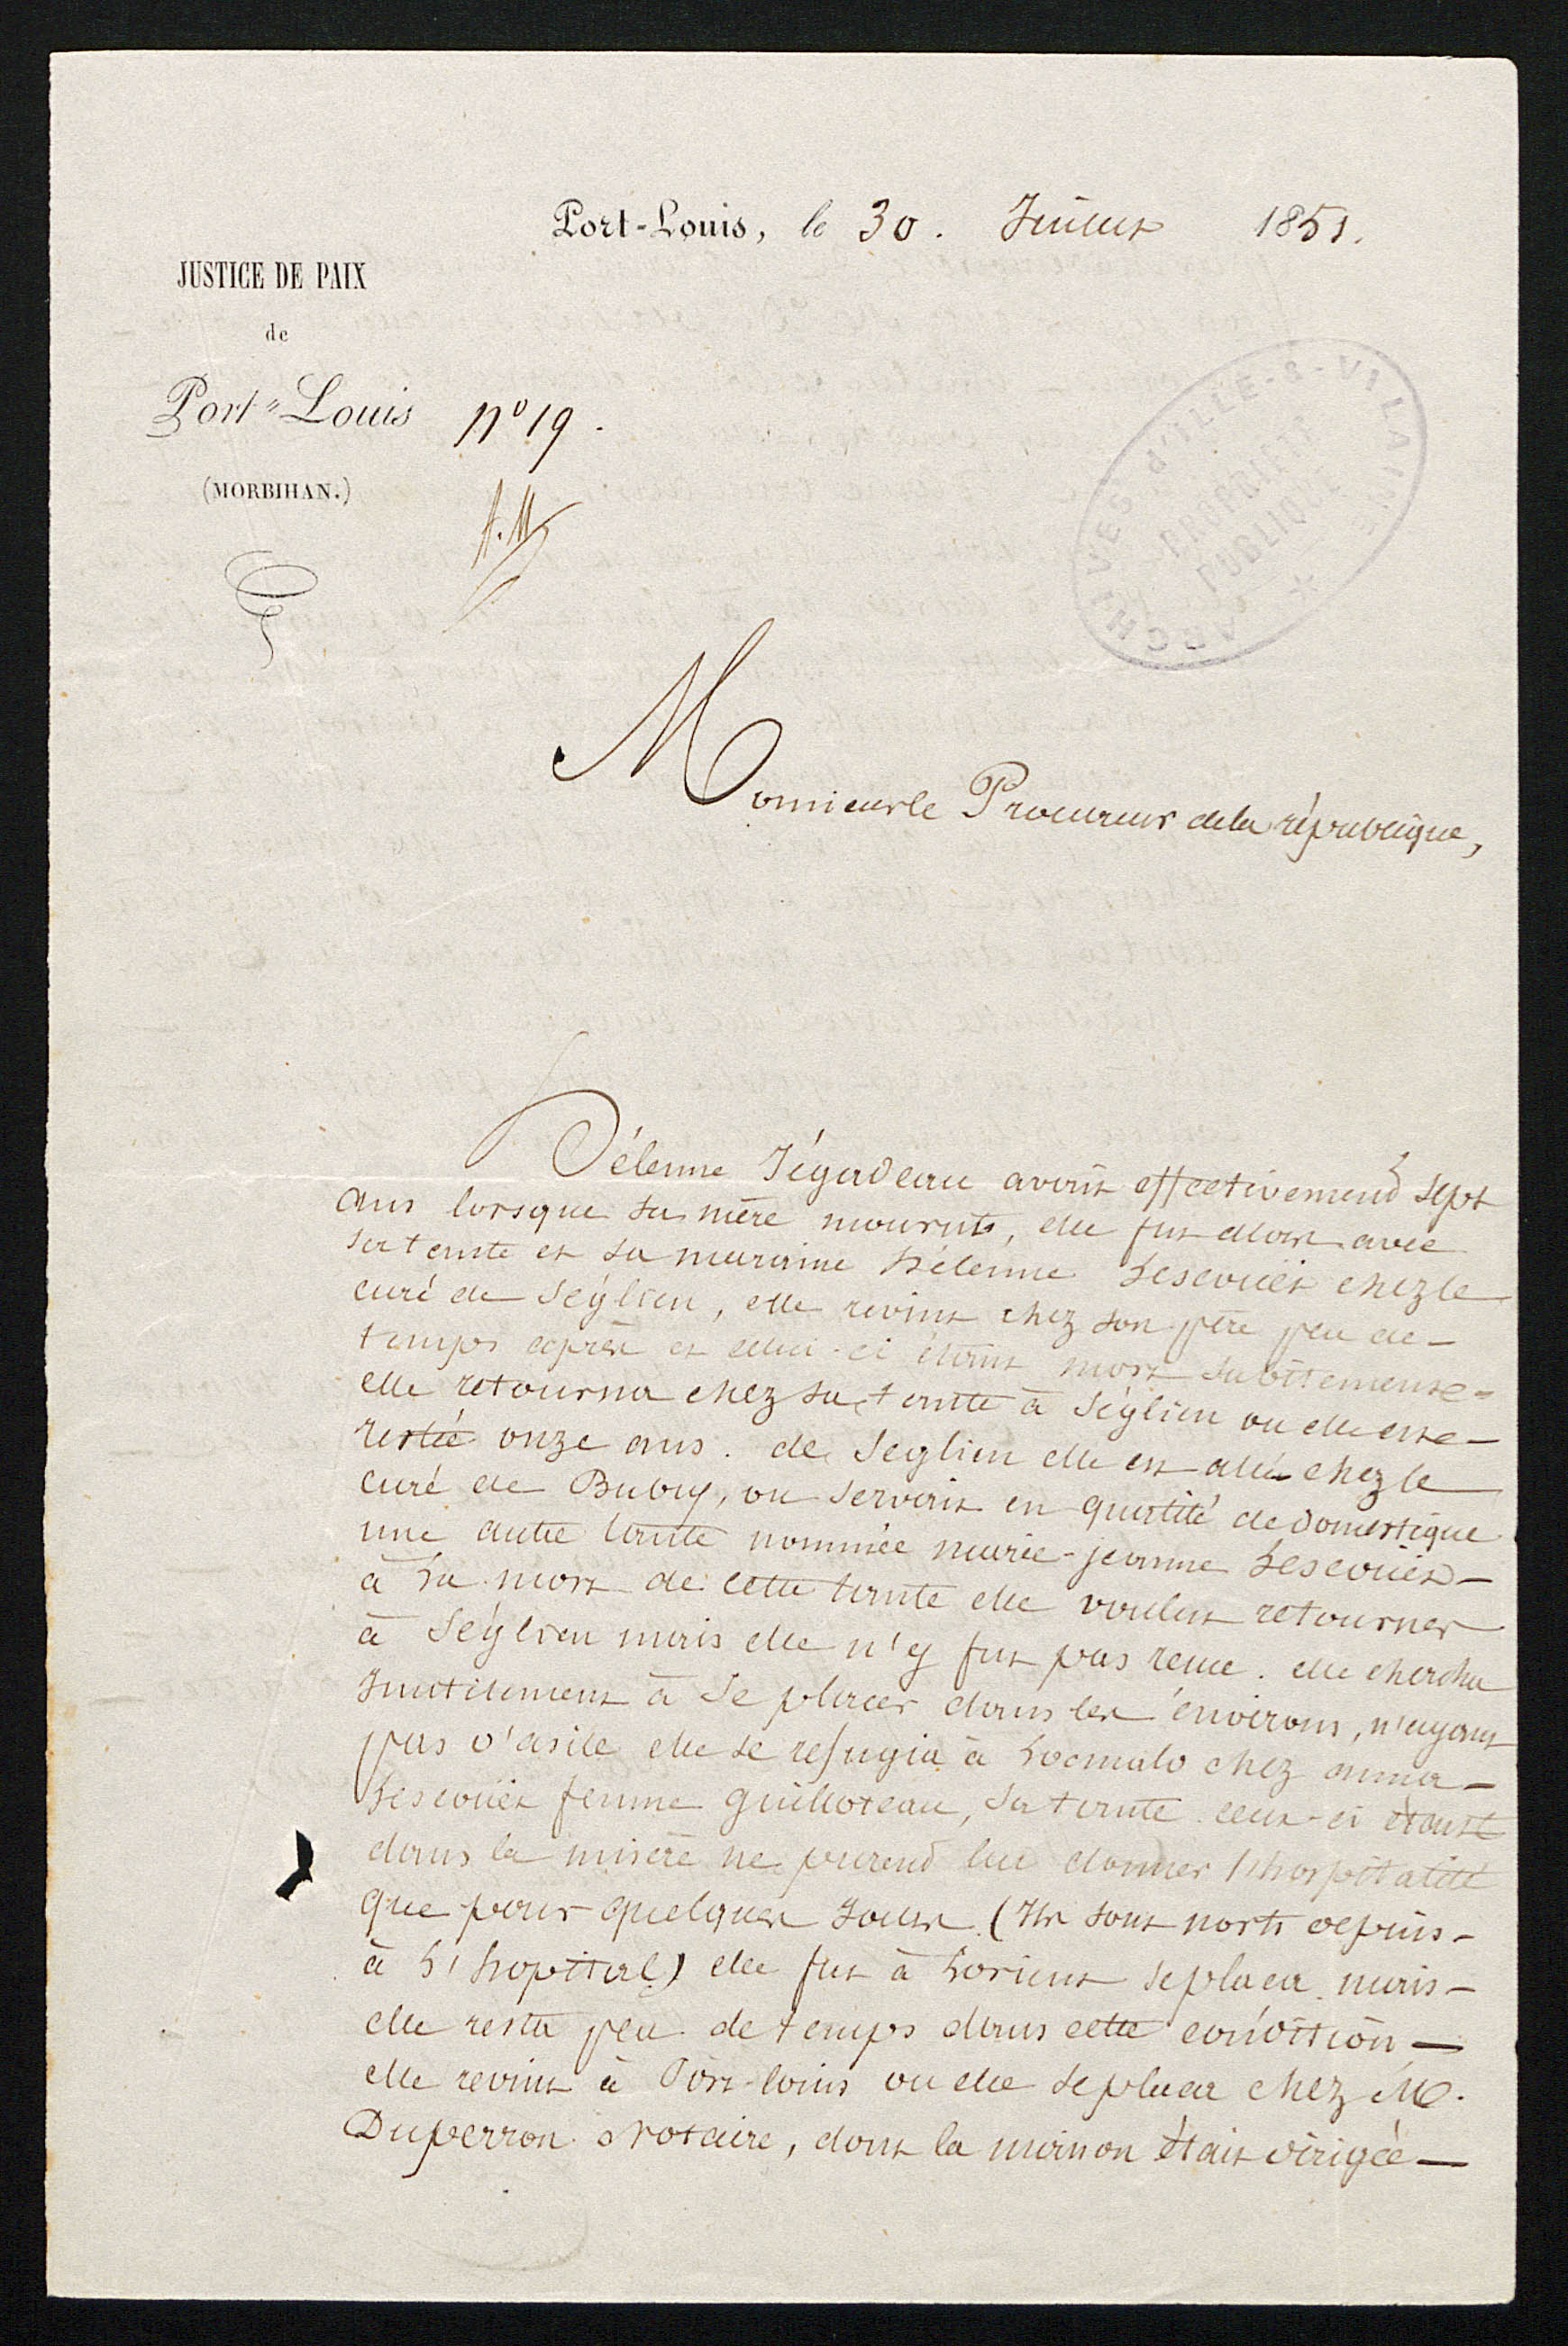 Port-Louis, le 30. Juillet 1851.
JUSTICE DE PAIX
de
Port-Louis nº 19.
(MORBIHAN.)
ARCHIVES D'ILLE-&-VILAINE
PROPRIÉTÉ
PUBLIQUE
Monsieur le Procureur de la république,
hélenne Jégadeau avait effectivemend sept
ans lorsque sa mère mourut, elle fut alors avec
sa tante et sa maraine hélenne Lescouët chez le
curé de Séglien, elle revint chez son père peu de -
temps après et celui-ci étant mort subitement -
elle retourna chez sa tante à Séglien ou elle est -
restée onze ans. de Seglien elle est allée chez le
curé de Bubry, ou servait en qualité de domestique
une autre tante nommée marie-jeanne Lescouët -
à la mort de cette tante elle voulut retourner
à Séglien mais elle n'y fut pas reçue. elle chercha
Inutilement à se placer dans les environs, n'ayant
pas d'asile elle se refugia à Locmalo chez anna -
Lescouët femme guilloteau, sa tante ceux-ci étant
dans la misère ne purend lui donner l'hospitalité
que pour quelques Jours (Ils sont morts depuis -
à L'hopital) elle fut à Lorient se plaça mais -
elle resta peu de temps dans cette condition -
elle revint à Port-louis ou elle se plaça chez M.
Duperron notaire, dont la maison était dirigée -